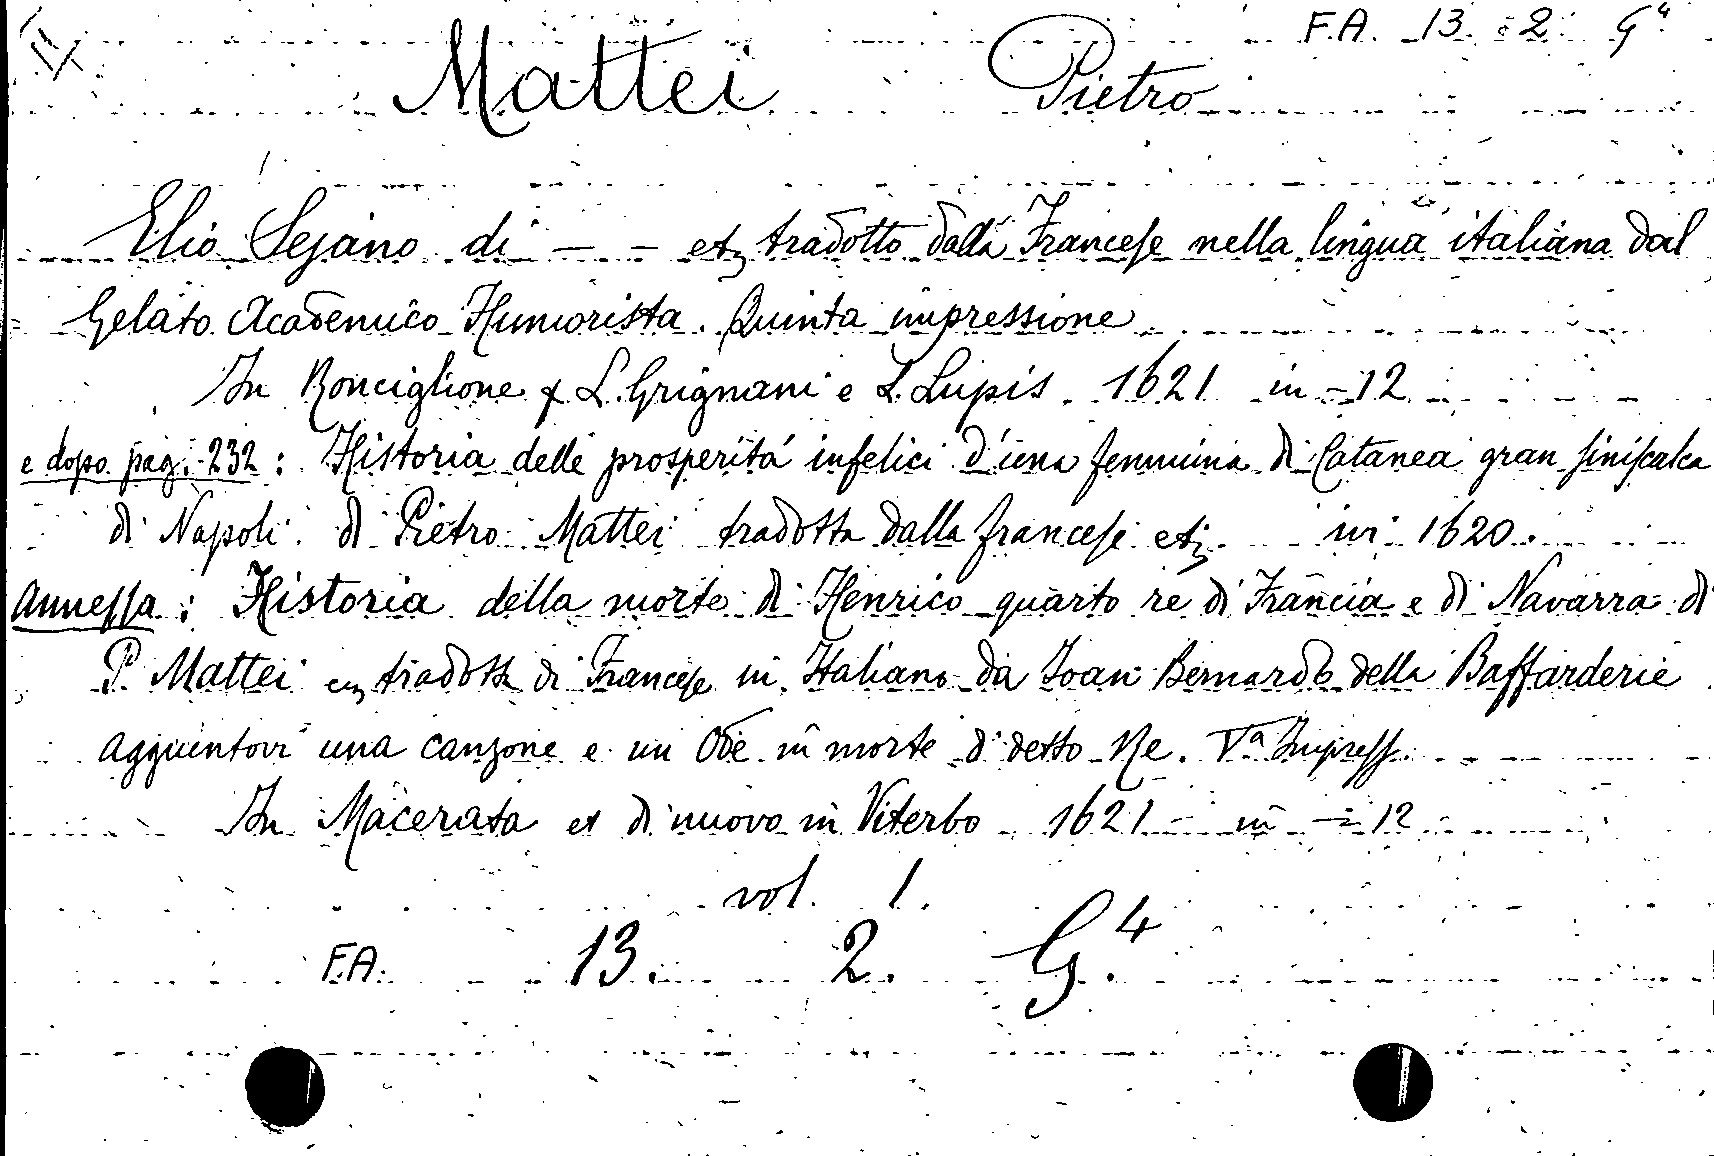 F.A. 13. 2. G⁴
Mattei Pietro
Elio Sejano di — — etc tradotto dalla Francese nella lingua italiana dal
Gelato Academico Humorista. Quinta impressione
In Ronciglione L. Grignani e L. Lupis. 1621 in - 12
e dopo pag. 232 : Historia delle prosperità infelici d'una femmina di Catanea gran siniscalca
di Napoli. di Pietro Mattei tradotta dalla francese etc. ivi 1620.
Annessa : Historia della morte di Henrico quarto re di Francia e di Navarra di
P. Mattei etc tradotta di Francese in Italiano da Ioan Bernardo della Baffarderie
aggiuntovi una canzone e un Ode in morte di detto Re. Vª Impress.
In Macerata et di nuovo in Viterbo 1621 in - 12
vol. 1.
F.A. 13. 2. G.⁴